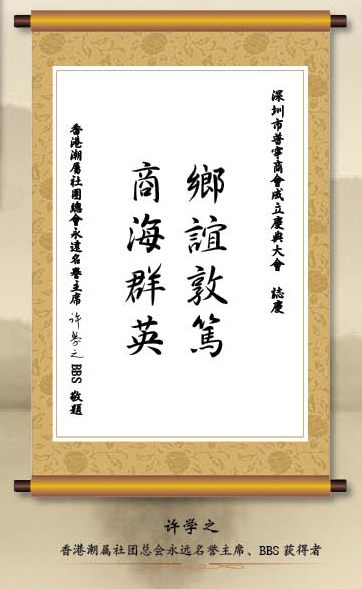 深圳市普寧商會成立慶典大會 誌慶
鄉誼敦篤
商海群英
香港潮屬社團總會永遠名譽主席 许学之 BBS 敬題
许学之
香港潮属社团总会永远名誉主席、BBS 获得者